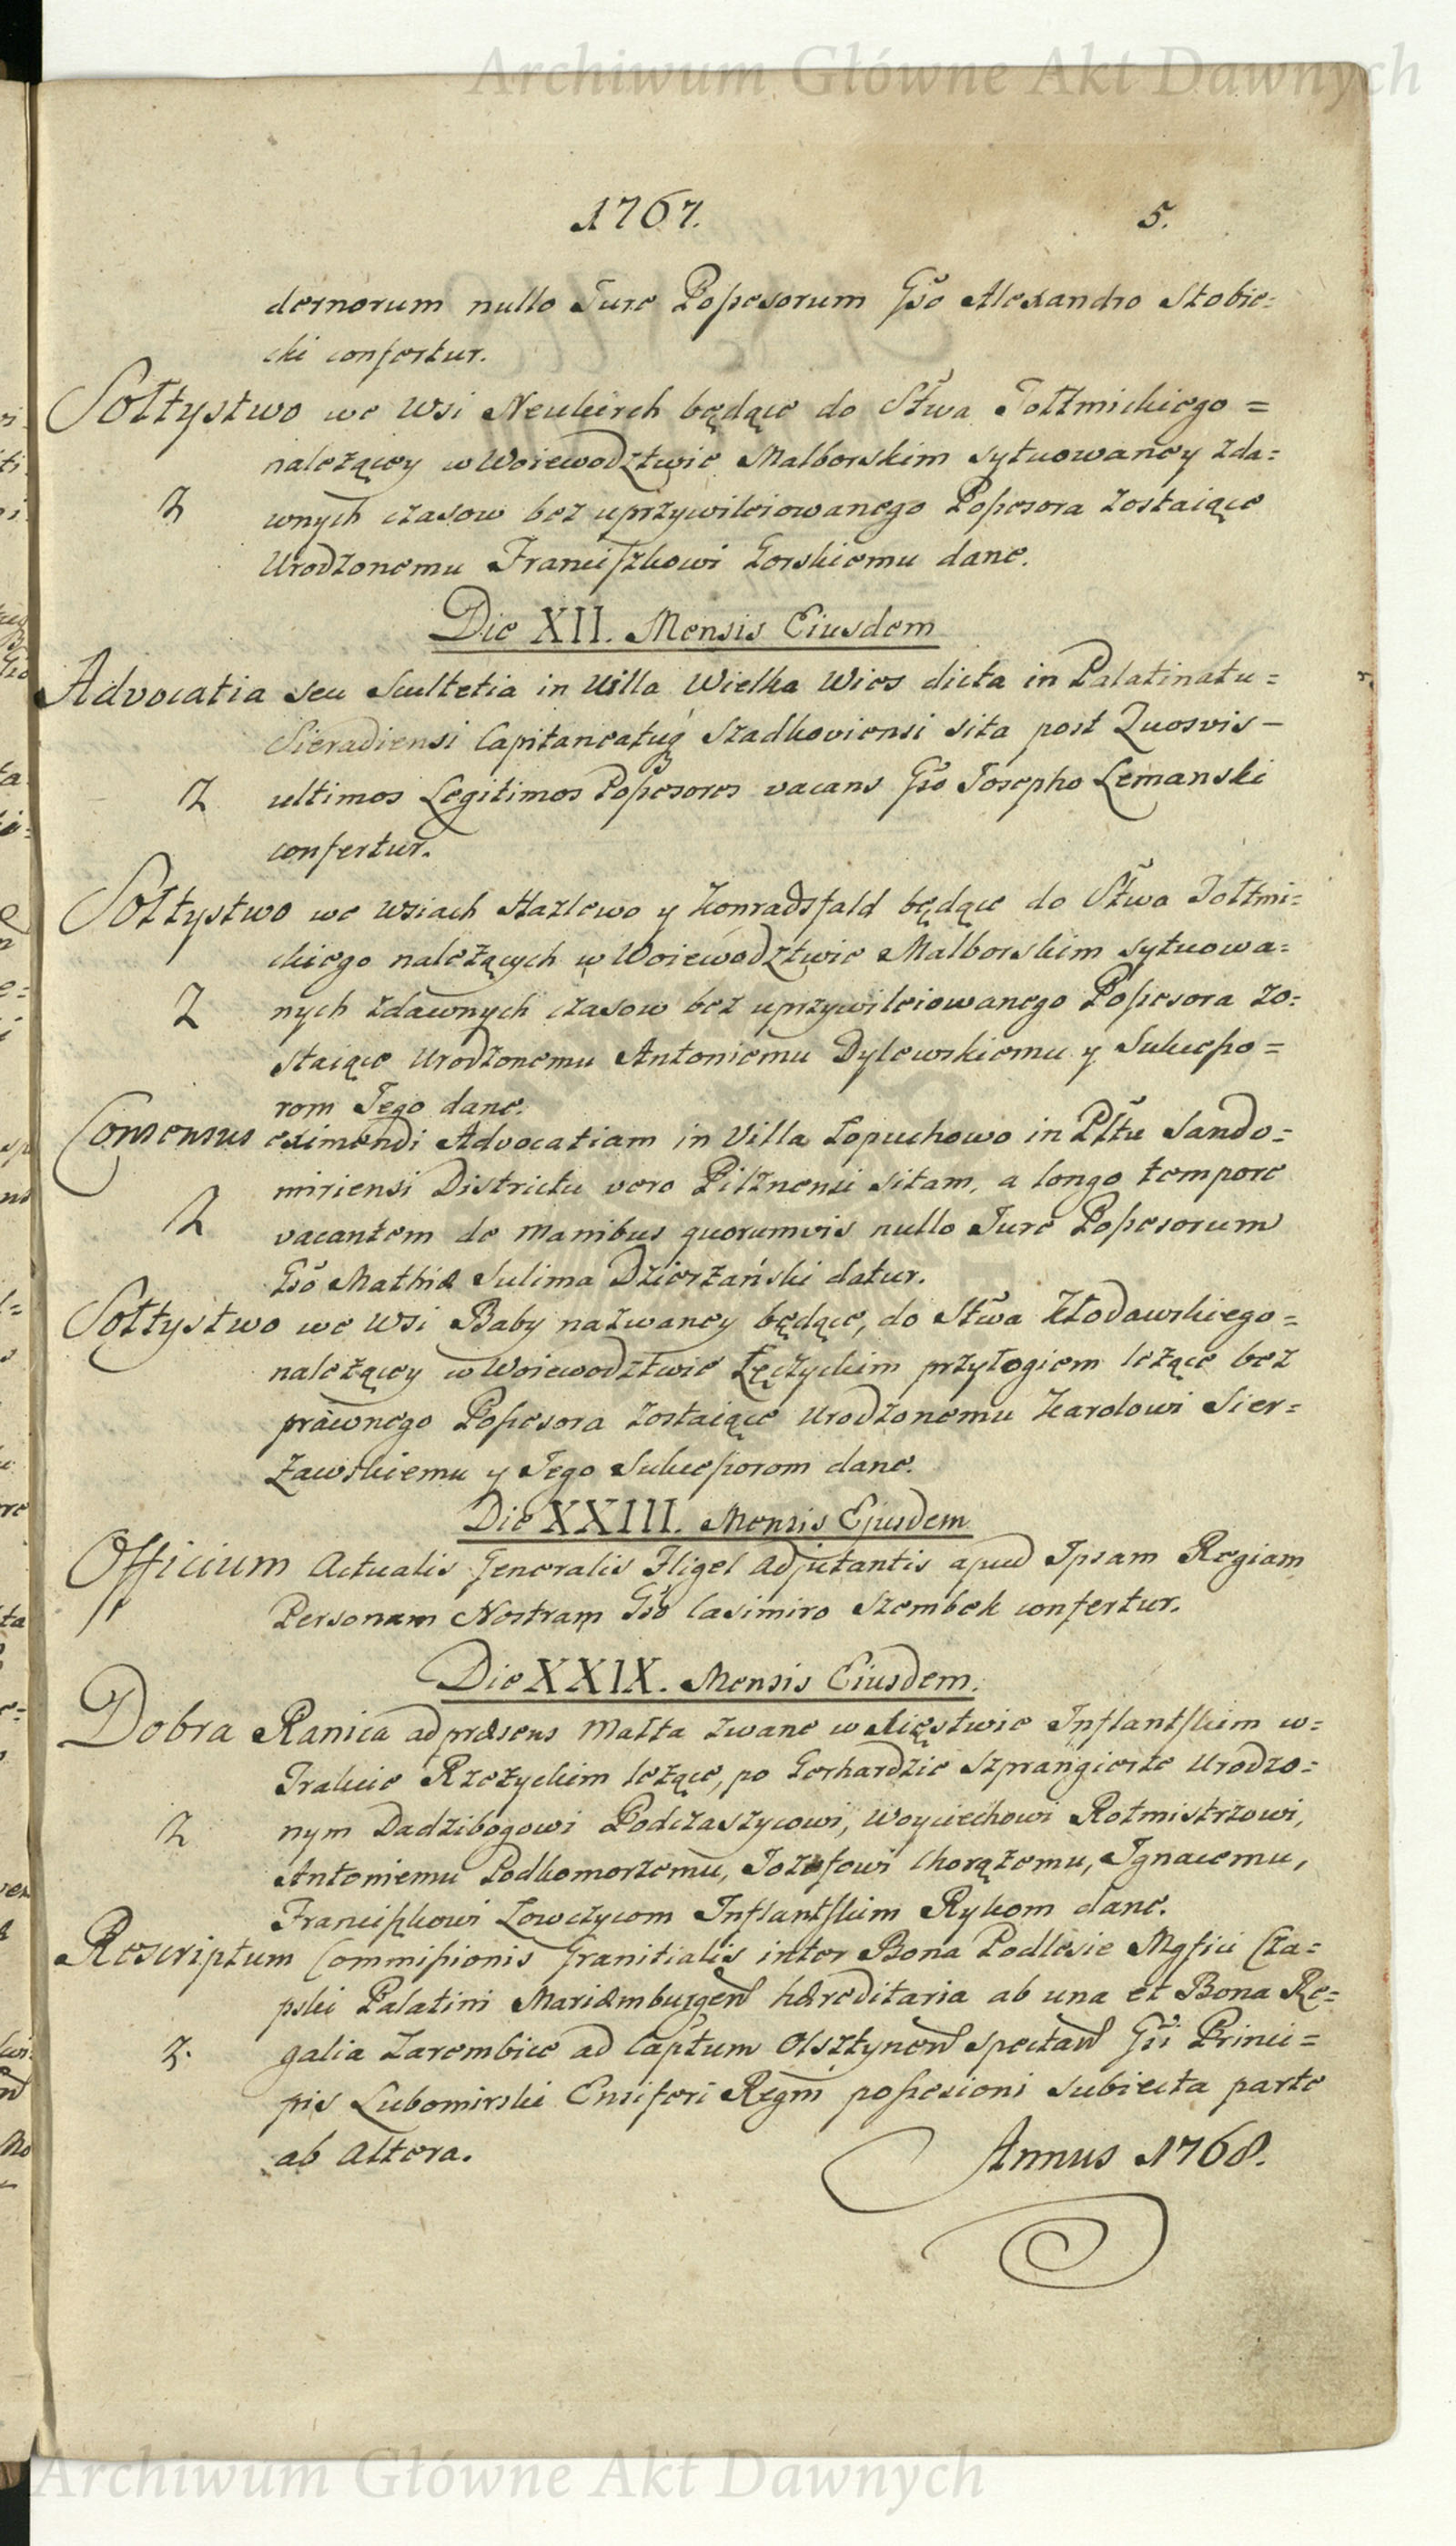 Archiwum Główne Akt Dawnych
1767.
5.
dernorum nullo Jure Possesorum Gso Alexandro Stobie=
cki confertur.
Sołtystwo we Wsi Neukirch będące do Sttwa Tołtmickiego =
należącey w Woiewodztwie Malborskim sytuowaney zda=
2 wnych czasow bez uprzywileiowanego Possesora zostaiące
Urodzonemu Franciszkowi Gorskiemu dane.
Die XII. Mensis Eiusdem
Advocatia seu Scultetia in Villa Wielka Wies dicta in Palatinatu =
Sieradiensi Capitaneatuq3 Szadkoviensi sita post Quosvis –
2 ultimos Legitimos Possesores vacans Gso Josepho Lemanski
confertur.
Sołtystwo we wsiach Hazlewo y Konradsfald będące do Sttwa Tołtmi=
ckiego należących w Woiewodztwie Malborskim sytuowa=
2 nych zdawnych czasow bez uprzywileiowanego Possesora zo=
staiące Urodzonemu Antoniemu Dylewskiemu y Sukcesso=
rom Jego dane.
Consensus eximendi Advocatiam in Villa Lopuchowo in Pltu Sando=
miriensi Districtu vero Pilznensi sitam, a longo tempore
2 vacantem de manibus quorumvis nullo Jure Possesorum
Gso Mathiæ Sulima Dzierzański datur.
Sołtystwo we Wsi Baby nazwaney będące, do Sttwa Kłodawskiego =
należącey w Woiewodztwie Łęczyckim przyłogiem leżące bez
prawnego Possesora zostaiące Urodzonemu Karolowi Sier=
zawskiemu y Jego Sukcessorom dane.
Die XXIII. Mensis Ejusdem
Officium Actualis Generalis Fligel Adjutantis apud Ipsam Regiam
Personam Nostram Gso Casimiro Szembek confertur.
Die XXIX. Mensis Eiusdem.
Dobra Ranica ad præsens Małta zwane w Xięstwie Inflantskim w=
Trakcie Rzeżyckim leżące, po Gerhardzie Szprangierze Urodzo=
2 nym Dadzibogowi Podczaszycowi, Woyciechowi Rotmistrzowi,
Antoniemu Podkomorzemu, Jozefowi Chorążemu, Ignacemu,
Franciszkowi Lowczycom Inflantskim Rykom dane.
Rescriptum Commissionis Granitialis inter Bona Podlesie Mgfici Cza=
pski Palatini Mariæmburgen hæreditaria ab una et Bona Re=
2. galia Zarembice ad Captum Olsztynen spectan Gsi Princi=
pis Lubomirski Ensiferi Regni possesioni subiecta parte
ab altera.
Annus 1768.
Archiwum Główne Akt Dawnych